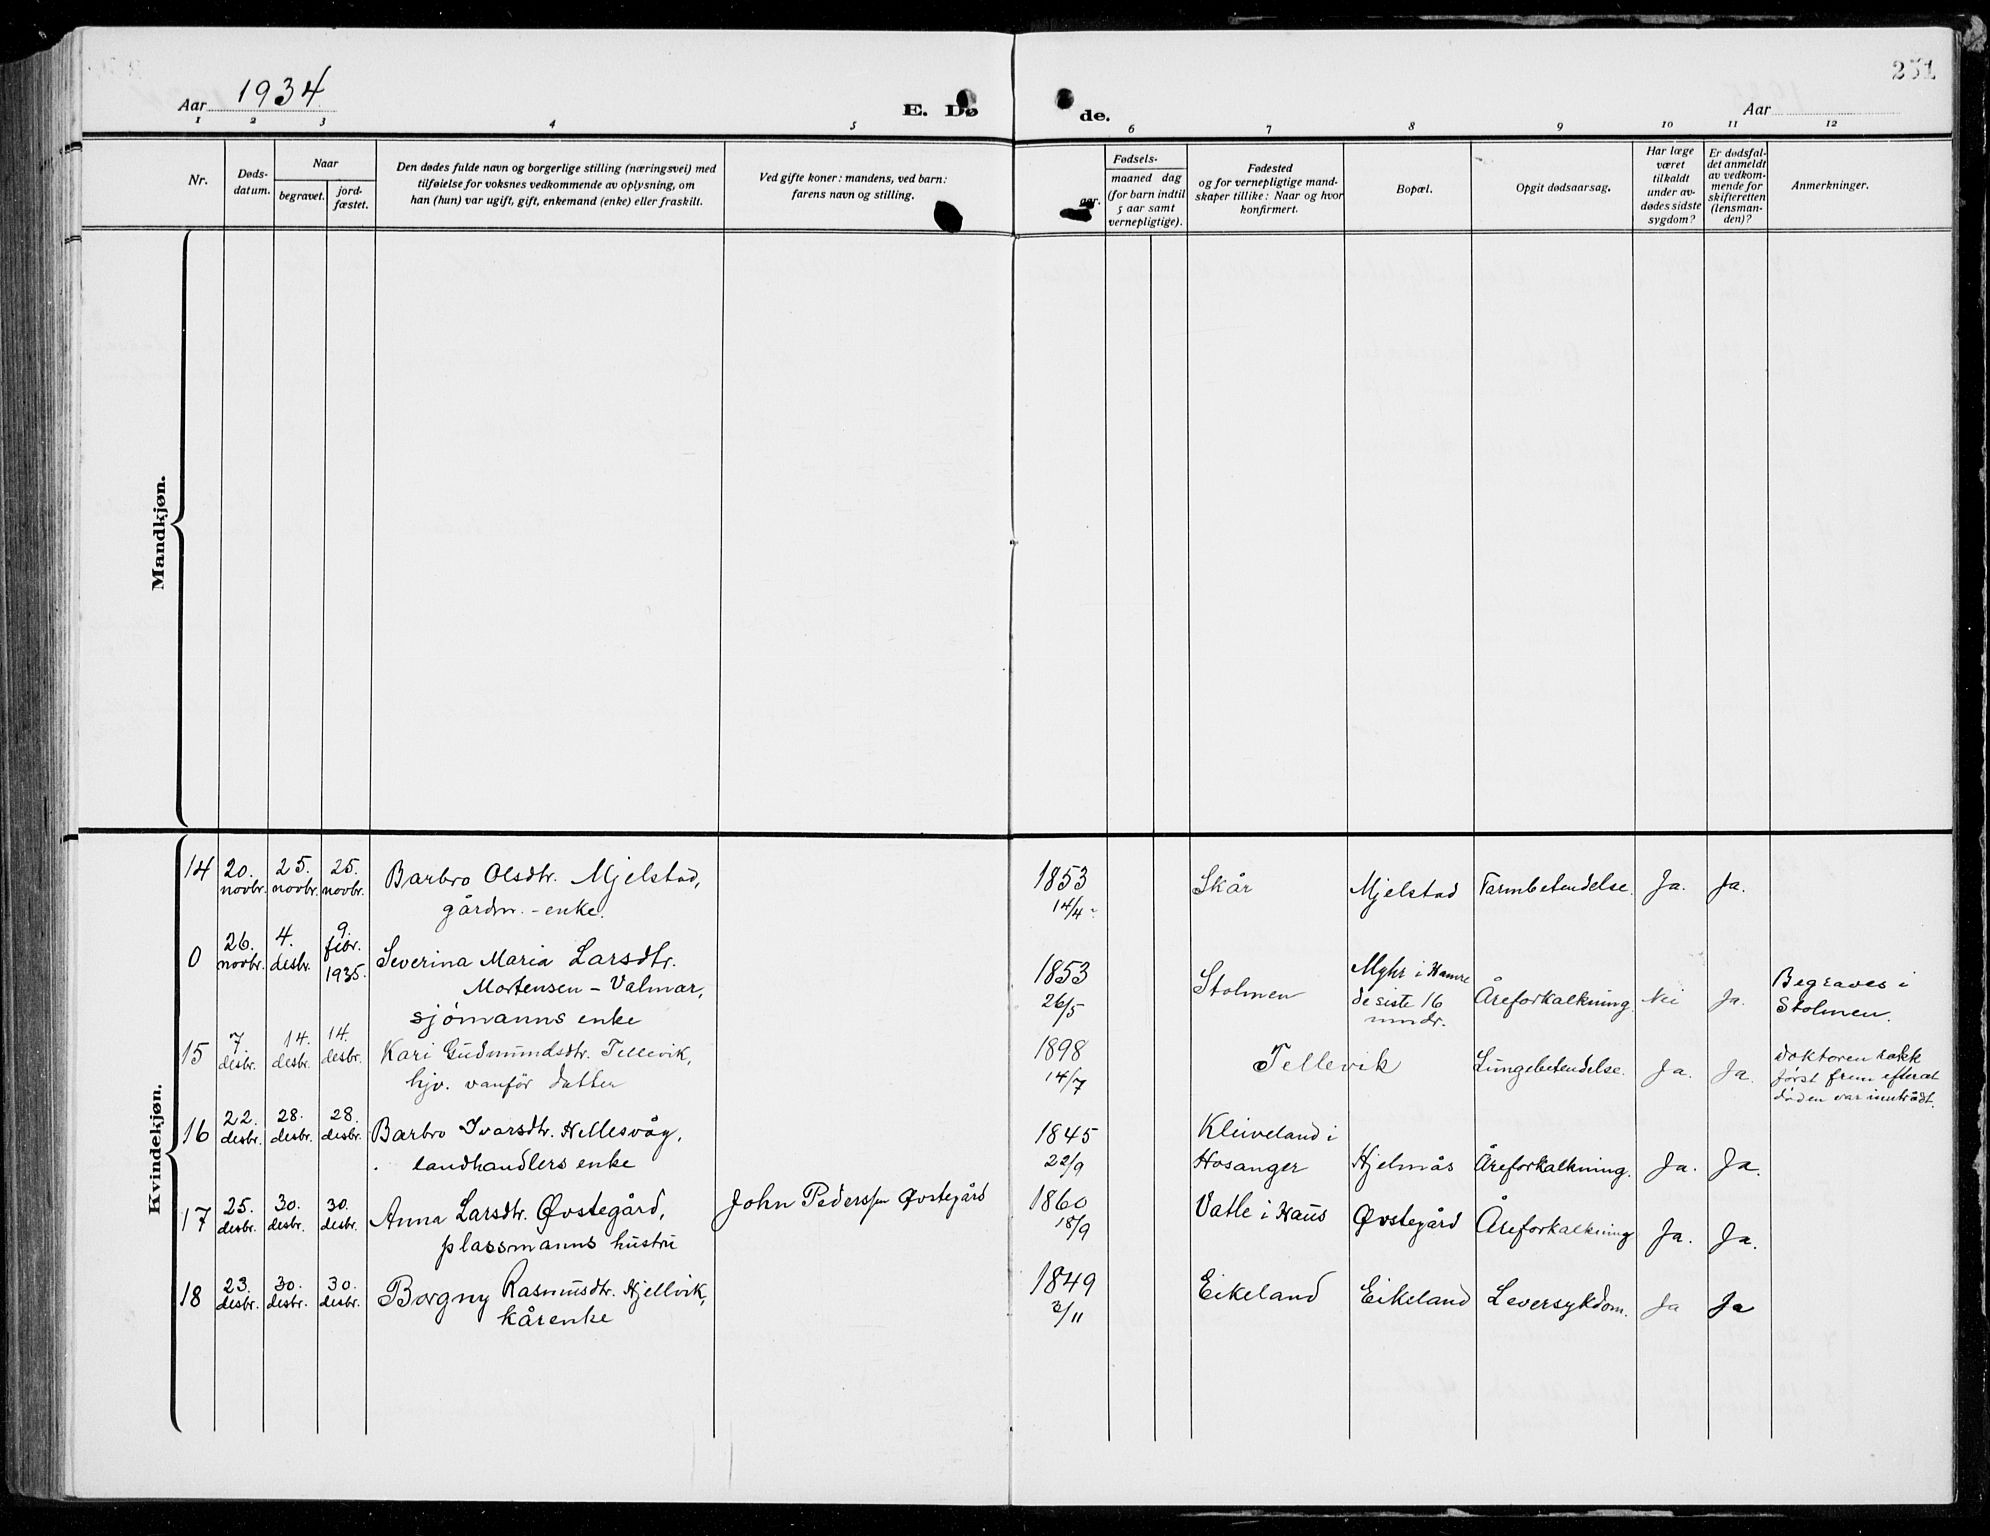 Aar 1934
E. Dø
de.
Aar
231
1 2 3 4 5 6 7 8 9 10 11 12
Nr.
Døds-
datum.
Naar
begravet.
jord-
fæstet.
Den dødes fulde navn og borgerlige stilling (næringsvei) med
tilføielse for voksnes vedkommende av oplysning, om
han (hun) var ugift, gift, enkemand (enke) eller fraskilt.
Ved gifte koner: mandens, ved barn:
farens navn og stilling.
Fødsels-
aar.
maaned dag
(for barn indtil
5 aar samt
vernepligtige).
Fødested
og for vernepligtige mand-
skaper tillike: Naar og hvor
konfirmert.
Bopæl.
Opgit dødsaarsag.
Har læge
været
tilkaldt
under av-
dødes sidste
sygdom?
Er dødsfal-
det anmeldt
av vedkom-
mende for
skifteretten
(lensman-
den)?
Anmerkninger.
Mandkjøn.
Kvindekjøn.
14 20. novbr. 25. novbr. 25. novbr. Barbro Olsdtr. Mjelstad, 1853 Skår Mjelstad Tarmbetendelse. Ja. Ja.
gårdm. - enke. 14/4
0 26. novbr. 4. desbr. 9. febr. 1935. Severina Maria Larsdtr. 1853 Stolmen Myhr i Hamre Åreforkalkning. Nei Ja. Begraves i
Mortensen - Valmar, 26/5 de siste 16 Stolmen.
sjömanns enke mndr.
15 7. desbr. 14. desbr. 14. desbr. Kari Gudmundsdtr. Tellevik, 1898 Tellevik Lungebetendelse. Ja. Ja. Doktoren rakk
hjv. vanför datter 14/7 först frem efterat
döden var inntrådt.
16 22. desbr. 28. desbr. 28. desbr. Barbro Ivarsdtr. Hellesvåg, 1845 Kleiveland i
landhandlers enke 22/9 Hosanger Hjelmås Åreforkalkning. Ja. Ja.
17 25. desbr. 30. desbr. 30. desbr. Anna Larsdtr. Øvstegård, John Pederssen Øvstegård 1860 Vatle i Haus Øvstegård Åreforkalkning Ja. Ja.
plassmanns hustru 18/9
18 23. desbr. 30. desbr. 30. desbr. Borgny Rasmusdtr. Hjellvik, 1849 Eikeland Eikeland Leversykdom. Ja Ja
kårenke 3/11